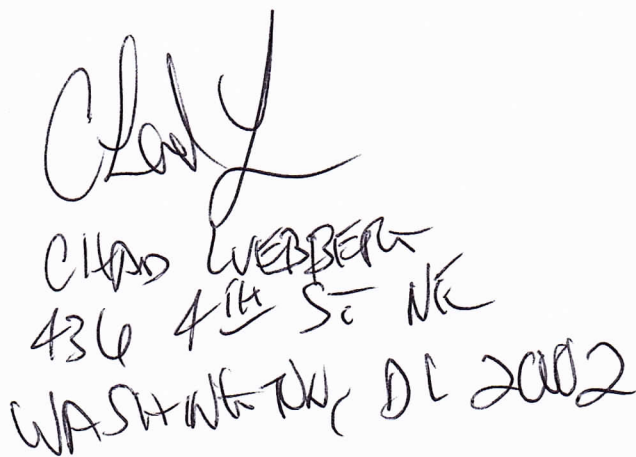 CHAD LUEBBERT
436 4TH St NE
WASHINGTON, DC 20002